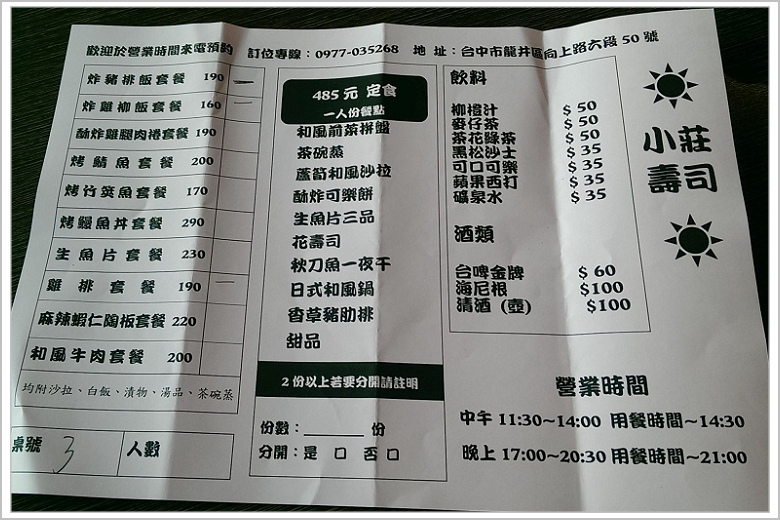 歡迎於營業時間來電預約 訂位專線：0977-035268 地址：台中市龍井區向上路六段50號
炸豬排飯套餐 190 一
炸雞柳飯套餐 160 一
酥炸雞腿肉捲套餐 190
烤鯖魚套餐 200
烤竹筴魚套餐 170
烤鰻魚丼套餐 290
生魚片套餐 230
雞排套餐 190 一
麻辣蝦仁陶板套餐 220
和風牛肉套餐 200
均附沙拉、白飯、漬物、湯品、茶碗蒸
桌號 3 人數
485元 定食
一人份餐點
和風前菜拼盤
茶碗蒸
蘆筍和風沙拉
酥炸可樂餅
生魚片三品
花壽司
秋刀魚一夜干
日式和風鍋
香草豬肋排
甜品
2份以上若要分開請註明
份數：______ 份
分開：是 口 否 口
飲料
柳橙汁 $50
麥仔茶 $50
茶花綠茶 $50
黑松沙士 $35
可口可樂 $35
蘋果西打 $35
礦泉水 $35
酒類
台啤金牌 $60
海尼根 $100
清酒（壺） $100
小莊
壽司
營業時間
中午 11:30~14:00 用餐時間~14:30
晚上 17:00~20:30 用餐時間~21:00